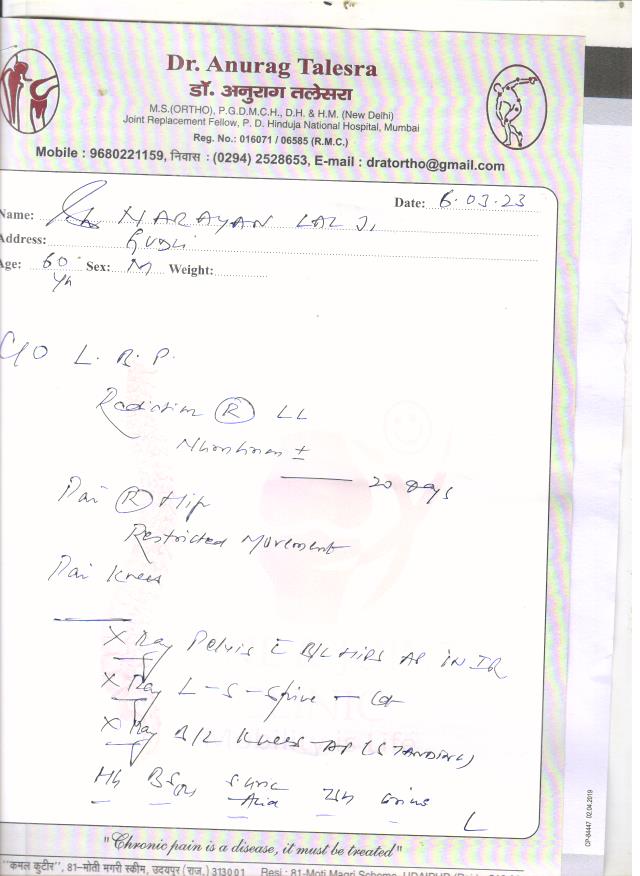 Dr. Anurag Talesra
डॉ. अनुराग तलेसरा
M.S.(ORTHO), P.G.D.M.C.H., D.H. & H.M. (New Delhi)
Joint Replacement Fellow, P. D. Hinduja National Hospital, Mumbai
Reg. No.: 016071 / 06585 (R.M.C.)
Mobile : 9680221159, निवास : (0294) 2528653, E-mail : dratortho@gmail.com
Date: 6.03.23
Name: NARAYAN LAL JI
Address:
Age: 60 Sex: M Weight:
Yr
C/O L. B. P.
Radiation R LL
Numbness ±
20 days
Pai R Hip
Restricted Movement
Pai Knees
X Ray Pelvis c B/L HIPS AP IN IR
X Ray L-S-Spine -
X Ray B/L Knees AP (STANDING)
Hb
Acid
"Chronic pain is a disease, it must be treated"
"कमल कुटीर", 81-मोती मगरी स्कीम, उदयपुर (राज.) 313001 Resi : 81-Moti Magri Scheme, UDAIPUR
CP-84447 02.04.2019